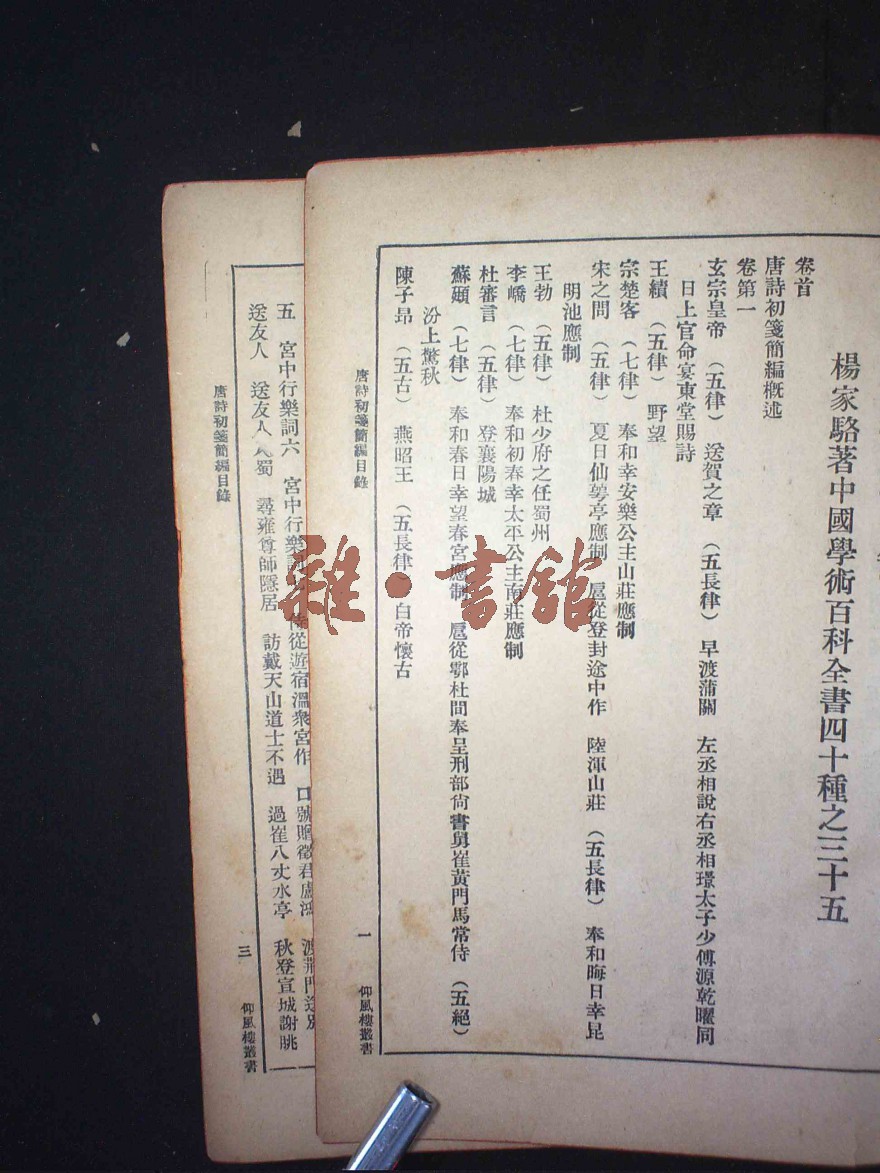 楊家駱著中國學術百科全書四十種之三十五
卷首
唐詩初箋簡編概述
卷第一
玄宗皇帝（五律）送賀之章（五長律）早渡蒲關　左丞相說右丞相璟太子少傅源乾曜同
日上官命宴東堂賜詩
王績（五律）野望
宗楚客（七律）奉和幸安樂公主山莊應制
宋之問（五律）夏日仙萼亭應制　扈從登封途中作　陸渾山莊（五長律）奉和晦日幸昆
明池應制
王勃（五律）杜少府之任蜀州
李嶠（七律）奉和初春幸太平公主南莊應制
杜審言（五律）登襄陽城
蘇頲（七律）奉和春日幸望春宮應制　扈從鄠杜間奉呈刑部尙書舅崔黃門馬常侍（五絕）
汾上驚秋
陳子昂（五古）燕昭王（五長律）白帝懷古
唐詩初箋簡編目錄
一
仰風樓叢書
五　宮中行樂詞六　宮中行樂　侍從遊宿溫泉宮作　口號贈徵君盧鴻　渡荊門送別
送友人　送友人入蜀　尋雍尊師隱居　訪戴天山道士不遇　過崔八丈水亭　秋登宣城謝朓
唐詩初箋簡編目錄
三
仰風樓叢書
雜·書館